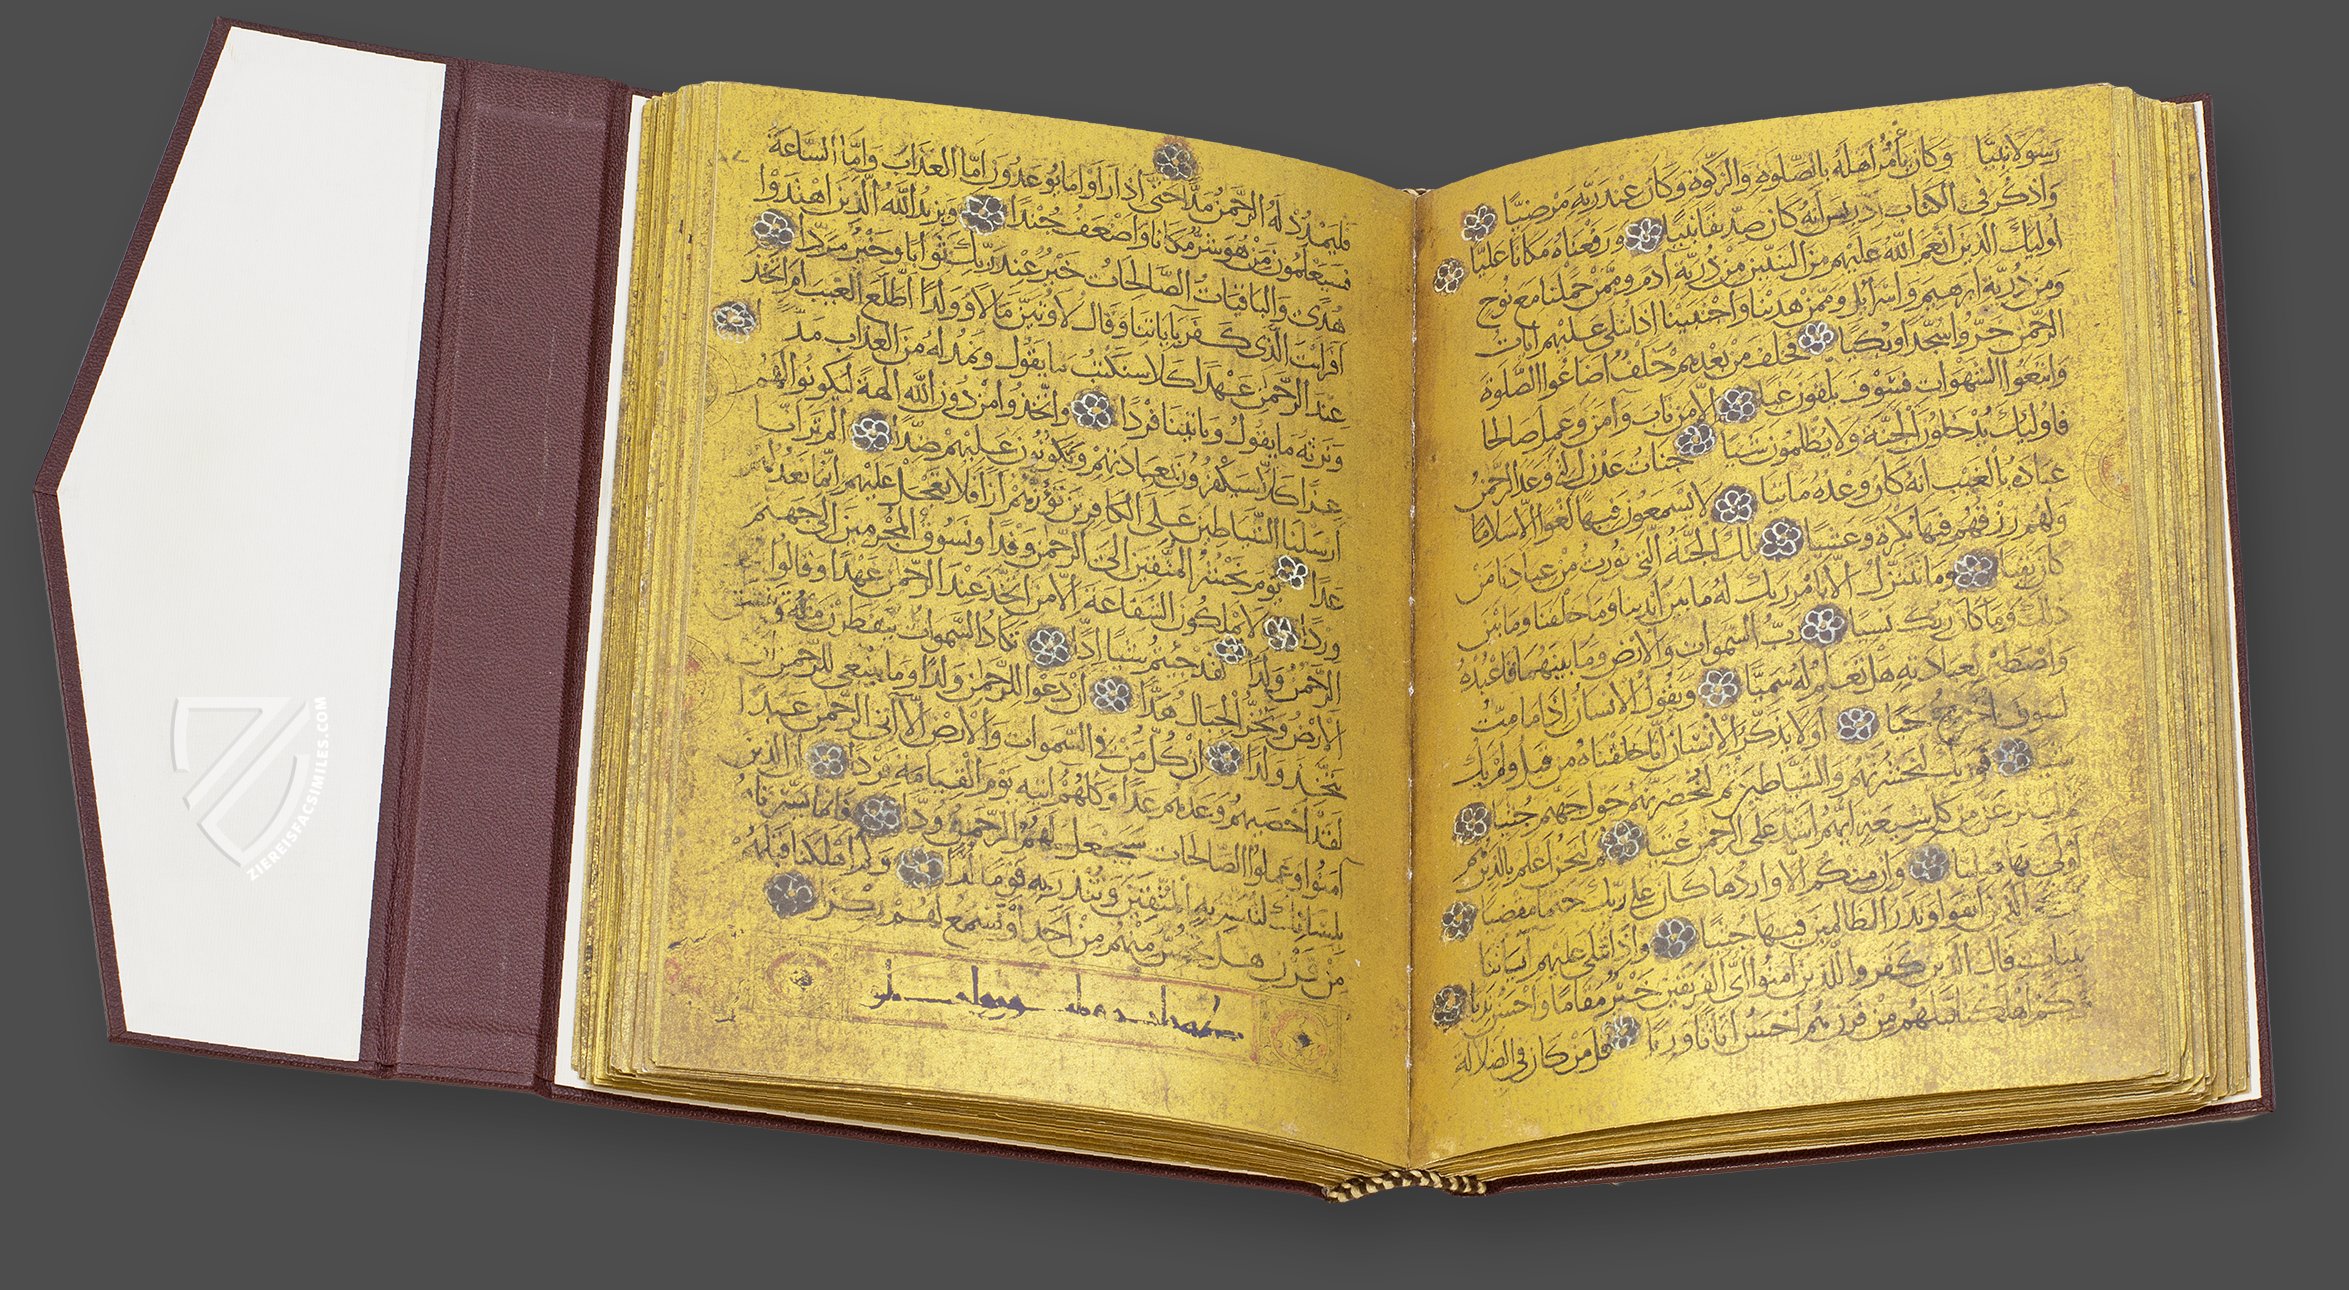 رسولا نبيا وكان يأمر أهله بالصلوة والزكوة وكان عند ربه مرضيا
واذكر في الكتاب ادريس انه كان صديقا نبيا ورفعناه مكانا عليا
اوليك الذين انعم الله عليهم من النبيين من ذرية ادم وممن حملنا مع نوح
ومن ذرية ابرهيم واسرائل وممن هدينا واجتبينا اذا تتلى عليهم ايات
الرحمن خروا سجدا وبكيا فخلف من بعدهم خلف اضاعوا الصلوة
واتبعوا الشهوات فسوف يلقون غيا الا من تاب وامن وعمل صالحا
فاوليك يدخلون الجنة ولا يظلمون شيا جنات عدن التي وعد الرحمن
عباده بالغيب انه كان وعده ماتيا لا يسمعون فيها لغوا الا سلاما
ولهم رزقهم فيها بكرة وعشيا تلك الجنة التي نورث من عبادنا من
كان تقيا وما نتنزل الا بامر ربك له ما بين ايدينا وما خلفنا وما بين
ذلك وما كان ربك نسيا رب السموات والارض وما بينهما فاعبده
واصطبر لعبادته هل تعلم له سميا ويقول الانسان اذا ما مت
لسوف اخرج حيا اولا يذكر الانسان انا خلقناه من قبل ولم يك
شيا فوربك لنحشرنهم والشياطين ثم لنحضرنهم حول جهنم جثيا
ثم لننزعن من كل شيعة ايهم اشد على الرحمن عتيا ثم لنحن اعلم بالذين هم
اولى بها صليا وان منكم الا واردها كان على ربك حتما مقضيا
الذين اتقوا ونذر الظالمين فيها جثيا واذا تتلى عليهم اياتنا
بينات قال الذين كفروا للذين امنوا اي الفريقين خير مقاما واحسن نديا
وكم اهلكنا قبلهم من قرن هم احسن اثاثا وريا قل من كان في الضلالة
فليمدد له الرحمن مدا حتى اذا راوا ما يوعدون اما العذاب واما الساعة
فسيعلمون من هو شر مكانا واضعف جندا ويزيد الله الذين اهتدوا
هدى والباقيات الصالحات خير عند ربك ثوابا وخير مردا
افرايت الذي كفر باياتنا وقال لاوتين مالا وولدا اطلع الغيب ام اتخذ
عند الرحمن عهدا كلا سنكتب ما يقول ونمد له من العذاب مدا
ونرثه ما يقول وياتينا فردا واتخذوا من دون الله الهة ليكونوا لهم
عزا كلا سيكفرون بعبادتهم ويكونون عليهم ضدا الم تر انا
ارسلنا الشياطين على الكافرين تؤزهم ازا فلا تعجل عليهم انما نعد لهم
عدا يوم نحشر المتقين الى الرحمن وفدا ونسوق المجرمين الى جهنم
وردا لا يملكون الشفاعة الا من اتخذ عند الرحمن عهدا وقالوا اتخذ
الرحمن ولدا لقد جيتم شيا ادا تكاد السموات يتفطرن منه وتنشق
الارض وتخر الجبال هدا ان دعوا للرحمن ولدا وما ينبغي للرحمن ان
يتخذ ولدا ان كل من في السموات والارض الا اتى الرحمن عبدا
لقد احصيهم وعدهم عدا وكلهم اتيه يوم القيامة فردا ان الذين
امنوا وعملوا الصالحات سيجعل لهم الرحمن ودا فانما يسرناه
بلسانك لتبشر به المتقين وتنذر به قوما لدا وكم اهلكنا قبلهم
من قرن هل تحس منهم من احد او تسمع لهم ركزا
ZIEREISFACSIMILES.COM